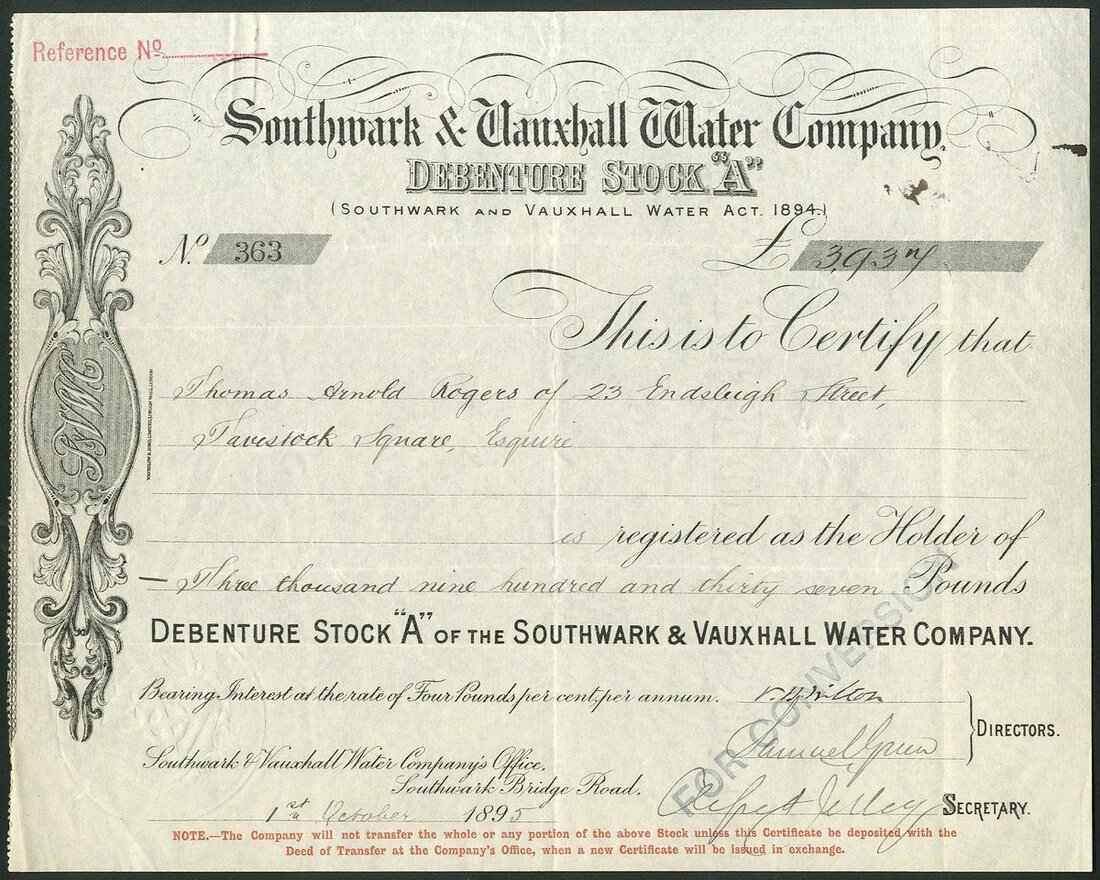 Reference Nº
Southwark & Vauxhall Water Company.
DEBENTURE STOCK "A"
(SOUTHWARK AND VAUXHALL WATER ACT. 1894.)
Nº 363
£ 3,937
This is to Certify that
Thomas Arnold Rogers of 23 Endsleigh Street,
Tavistock Square, Esquire
is registered as the Holder of
Three thousand nine hundred and thirty seven Pounds
DEBENTURE STOCK "A" OF THE SOUTHWARK & VAUXHALL WATER COMPANY.
Bearing Interest at the rate of Four Pounds per cent, per annum.
Samuel Green
DIRECTORS.
Southwark & Vauxhall Water Company's Office,
Southwark Bridge Road.
1st October 1895
SECRETARY.
FOR CONVERSION
NOTE.—The Company will not transfer the whole or any portion of the above Stock unless this Certificate be deposited with the
Deed of Transfer at the Company's Office, when a new Certificate will be issued in exchange.